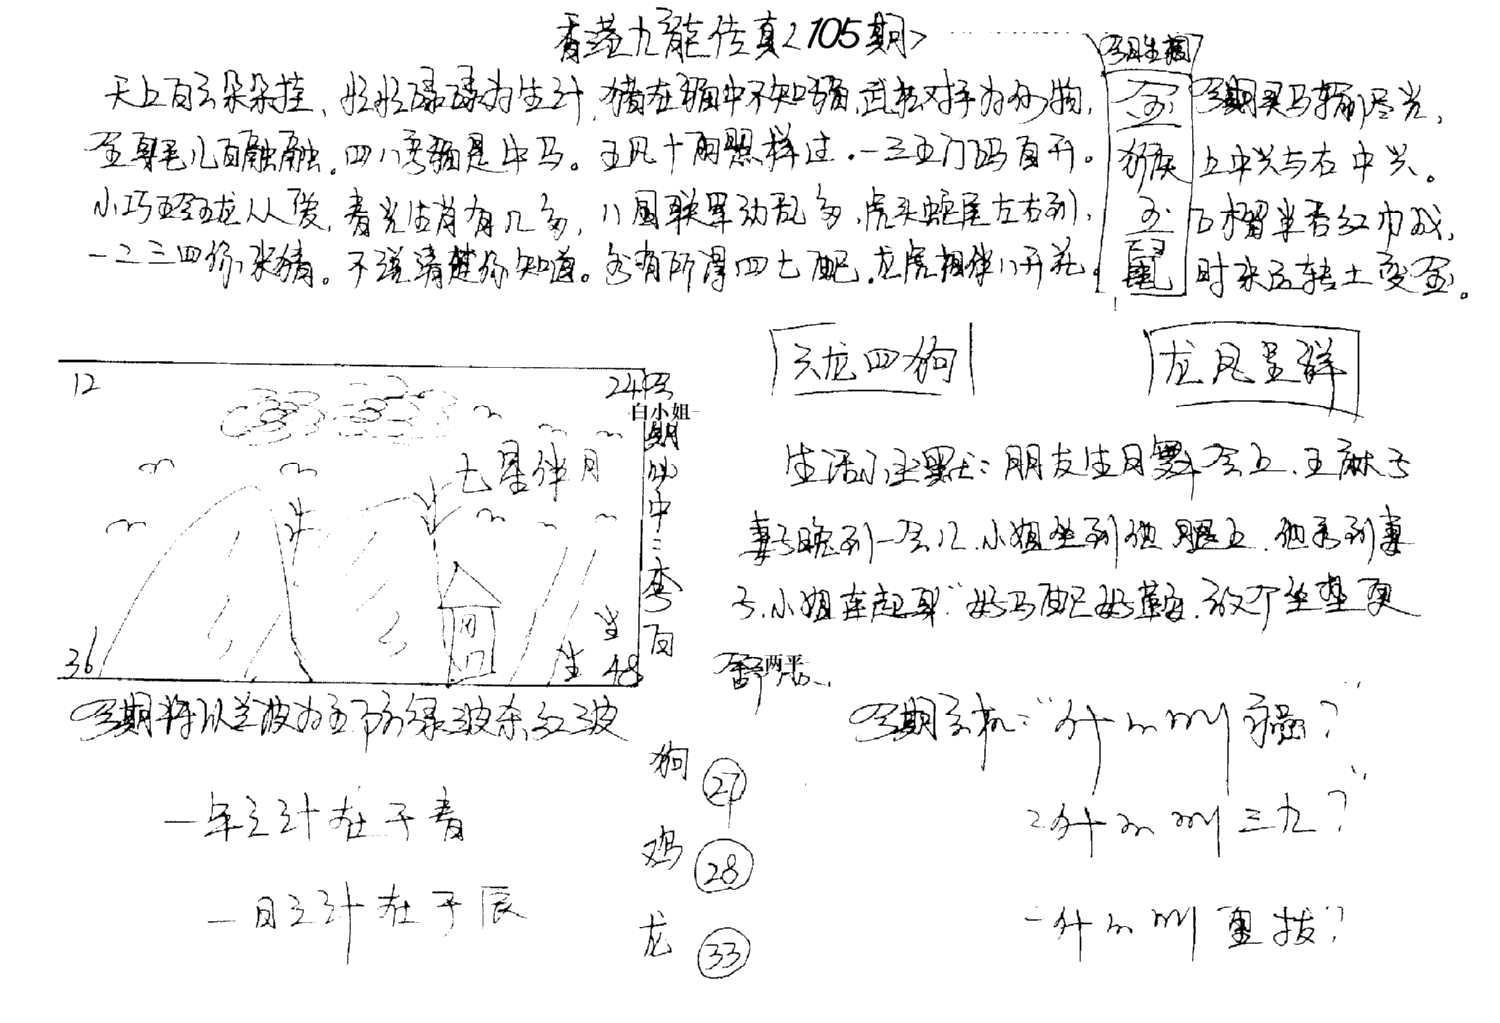 香港九龍传真<105期>
天上白云朵朵挂、忙忙碌碌为生计,猪在猫中不知猫,武松对手为何物,
全身毛儿白融融.四八号猫是牛马。五风十雨照样过.一三五门码直开。
小巧玲珑龙人人爱,春光生肖有几多,八国联军动乱多,虎头蛇尾左右到,
一二三四你来猜。不说清楚你知道。各有所得四七配.龙虎相伴八开花.
金
猴
玉
鼠
今期买马输尽光,
上中兴与右中兴。
石榴半吞红巾成,
时来运转土变金。
天龙四狗
龙凤呈祥
12
24
白小姐
期必中:本子百
七星伴月
牛
牛
36
48
生活小幽默:朋友生日舞会上.王麻子
妻子晚到一会儿.小姐坐到他腿上.他看到妻
子.小姐连起身"好马配好鞍.放个坐垫更
舒服
两平
今期将以兰波为主下防绿波杀红波
今期玄机:"为什么叫福?
2为什么叫三九?"
一什么叫直拔?
一年之计在于春
一日之计在于辰
狗 27
鸡 28
龙 33